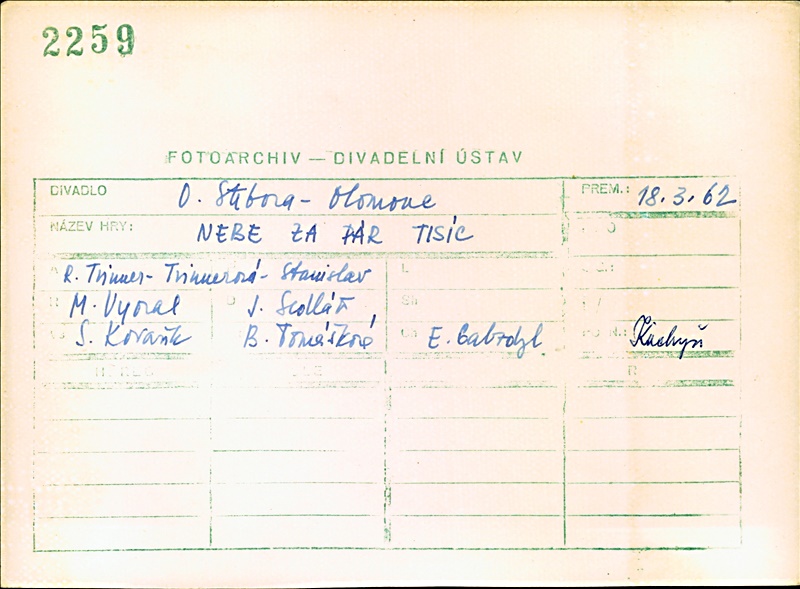 2259
FOTOARCHIV — DIVADELNÍ ÚSTAV
DIVADLO O. Stibora - Olomouc PREM.: 18.3.62
NÁZEV HRY: NEBE ZA PÁR TISÍC
R. Trinner - Trinnerová - Stanislav L
M. Vyoral J. Sedlář
S. Kovařík B. Tomášková Ch E. Gabrdzyl